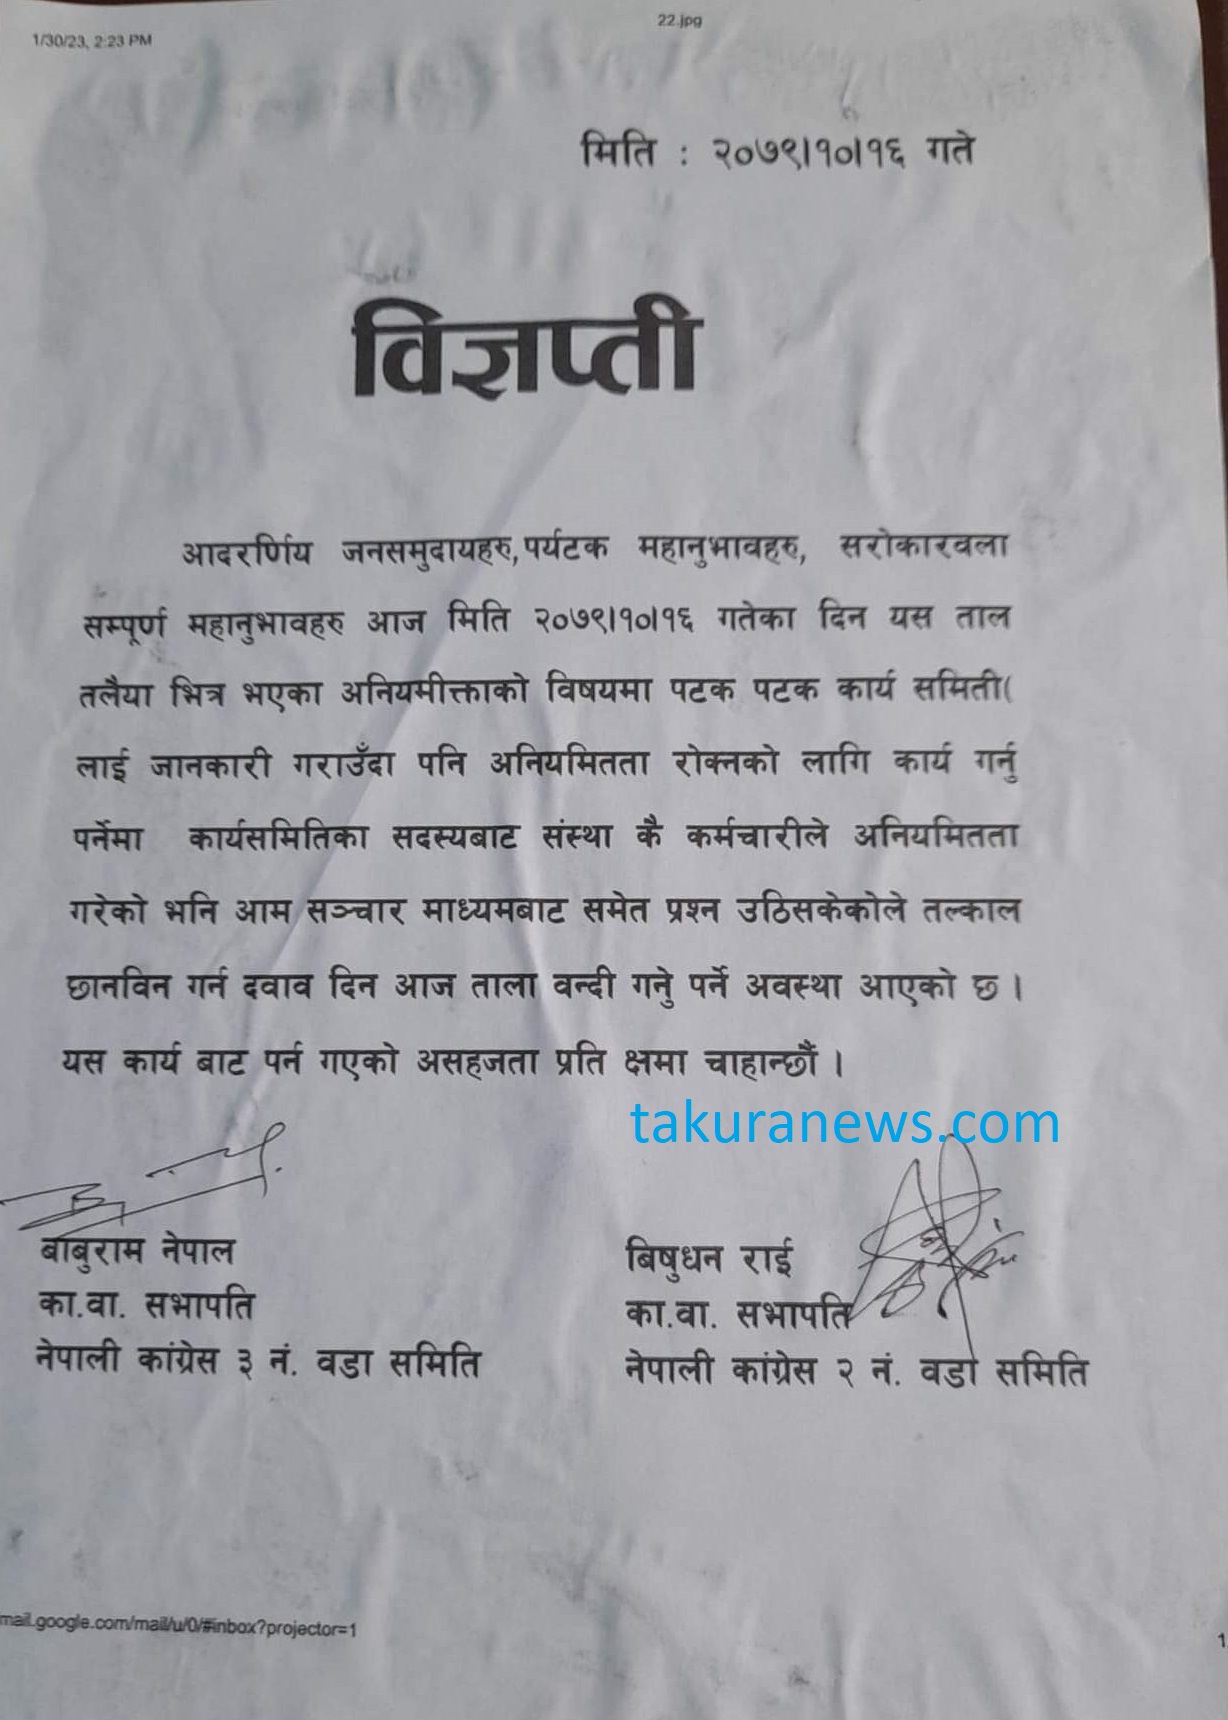 1/30/23, 2:23 PM
22.jpg
मिति : २०७९।१०।१६ गते
विज्ञप्ती
आदरर्णिय जनसमुदायहरु,पर्यटक महानुभावहरु, सरोकारवला
सम्पूर्ण महानुभावहरु आज मिति २०७९।१०।१६ गतेका दिन यस ताल
तलैया भित्र भएका अनियमीक्ताको विषयमा पटक पटक कार्य समिती(
लाई जानकारी गराउँदा पनि अनियमितता रोक्नको लागि कार्य गर्नु
पर्नेमा कार्यसमितिका सदस्यबाट संस्था कै कर्मचारीले अनियमितता
गरेको भनि आम सञ्चार माध्यमबाट समेत प्रश्न उठिसकेकोले तल्काल
छानविन गर्न दवाव दिन आज ताला वन्दी गनुे पर्ने अवस्था आएको छ ।
यस कार्य बाट पर्न गएको असहजता प्रति क्षमा चाहान्छौं ।
takuranews.com
बाबुराम नेपाल
का.वा. सभापति
नेपाली कांग्रेस ३ नं. वडा समिति
बिषुधन राई
का.वा. सभापति
नेपाली कांग्रेस २ नं. वडा समिति
mail.google.com/mail/u/0/#inbox?projector=1
1